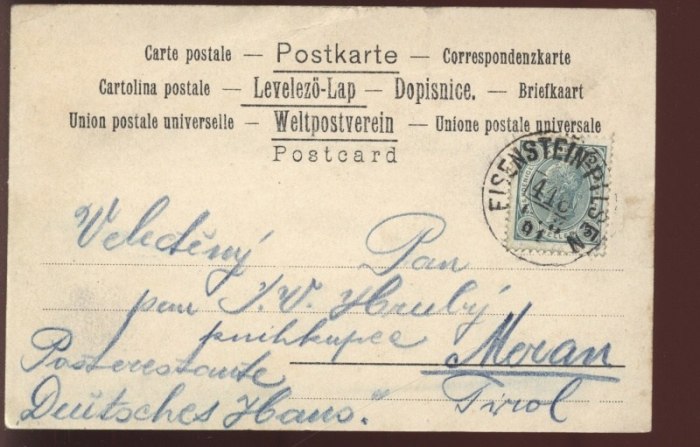 Carte postale — Postkarte — Correspondenzkarte
Cartolina postale — Levelező-Lap — Dopisnice. — Briefkaart
Union postale universelle — Weltpostverein — Unione postale universale
Postcard
EISENSTEIN-PILSEN
418
Veleděný Pan
pan J. V. Hrubý
knihkupce
Meran
Posterestante
Tirol
„Deutsches Haus."